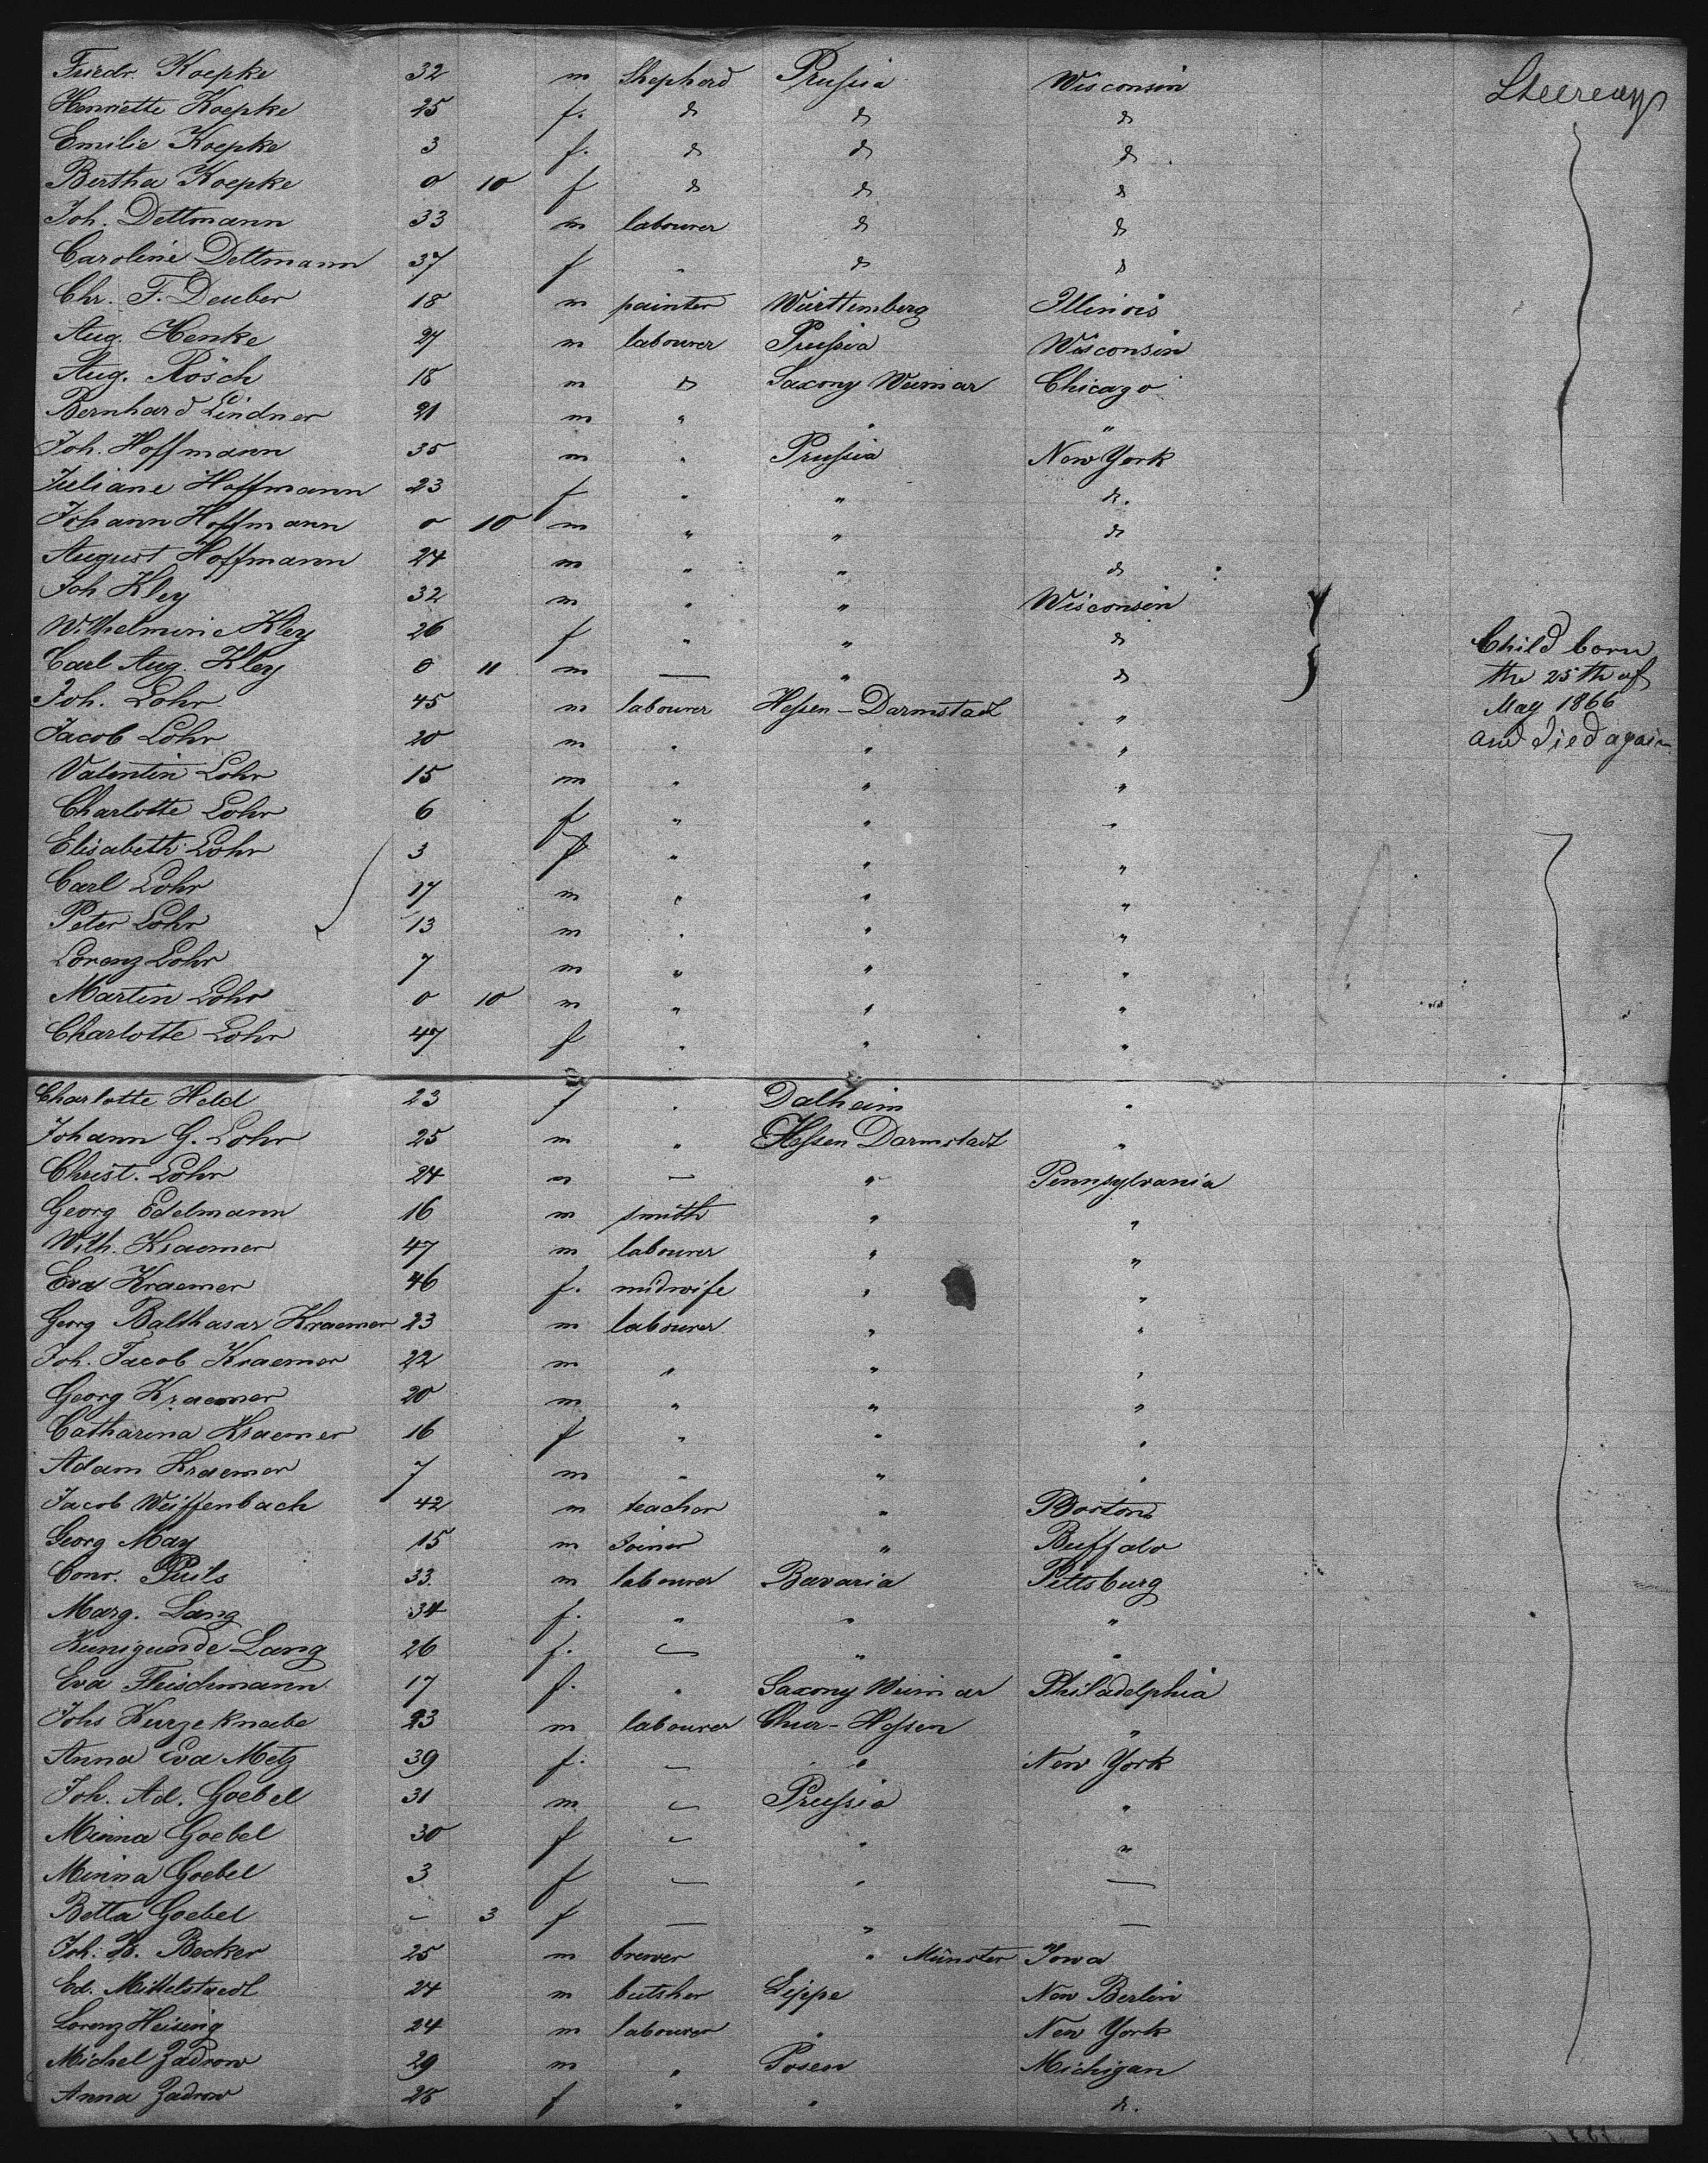 Friedr. Koepke 32 m Shepherd Prussia Wisconsin Steerage
Henriette Koepke 25 f. do do do
Emilie Koepke 3 f. do do do
Bertha Koepke 0 10 f do do do
Joh. Dettmann 33 m labourer do do
Caroline Dettmann 37 f " do do
Chr. F. Deuber 18 m painter Württemberg Illinois
Aug. Henke 27 m labourer Prussia Wisconsin
Aug. Rösch 18 m do Saxony Weimar Chicago
Bernhard Lindner 21 m " " "
Joh. Hoffmann 35 m " Prussia New York
Juliane Hoffmann 23 f " " do.
Johann Hoffmann 0 10 m " " do
August Hoffmann 24 m " " do
Joh Kley 32 m " " Wisconsin
Wilhelmine Kley 26 f " " do Child born
Carl Aug. Kley 0 11 m — " do the 25th of
Joh. Lohr 45 m labourer Hessen-Darmstadt " May 1866
Jacob Lohr 20 m " " " and died again
Valentin Lohr 15 m " " "
Charlotte Lohr 6 f " " "
Elisabeth Lohr 3 f " " "
Carl Lohr 17 m " " "
Peter Lohr 13 m " " "
Lorenz Lohr 7 m " " "
Martin Lohr 0 10 m " " "
Charlotte Lohr 47 f " " "
Charlotte Held 23 f " Dalheim "
Johann G. Lohr 25 m " Hessen Darmstadt "
Christ. Lohr 24 m — " Pennsylvania
Georg Edelmann 16 m smith " "
Wilh. Kraemer 47 m labourer " "
Eva Kraemer 46 f. midwife " "
Georg Balthasar Kraemer 23 m labourer " "
Joh. Jacob Kraemer 22 m " " "
Georg Kraemer 20 m " " "
Catharina Kraemer 16 f " " "
Adam Kraemer 7 m " " "
Jacob Weiffenbach 42 m teacher " Boston
Georg May 15 m Joiner " Buffalo
Conr. Puils 33 m labourer Bavaria Pittsburg
Marg. Lang 34 f. " " "
Kunigunde Lang 26 f. — " "
Eva Fleischmann 17 f. " Saxony Weimar Philadelphia
Johs Kurzeknabe 23 m labourer Chur-Hessen "
Anna Eva Metz 39 f. — " New York
Joh. Ad. Goebel 31 m — Prussia "
Minna Goebel 30 f — " "
Minna Goebel 3 f — " —
Betta Goebel — 3 f — " —
Joh. H. Becker 25 m brewer " Münster Iowa
Ed. Mittelstaedt 24 m butsher Lippe New Berlin
Lorenz Heising 24 m labourer " New York
Michel Zadrow 29 m " Posen Michigan
Anna Zadrow 28 f " " do.